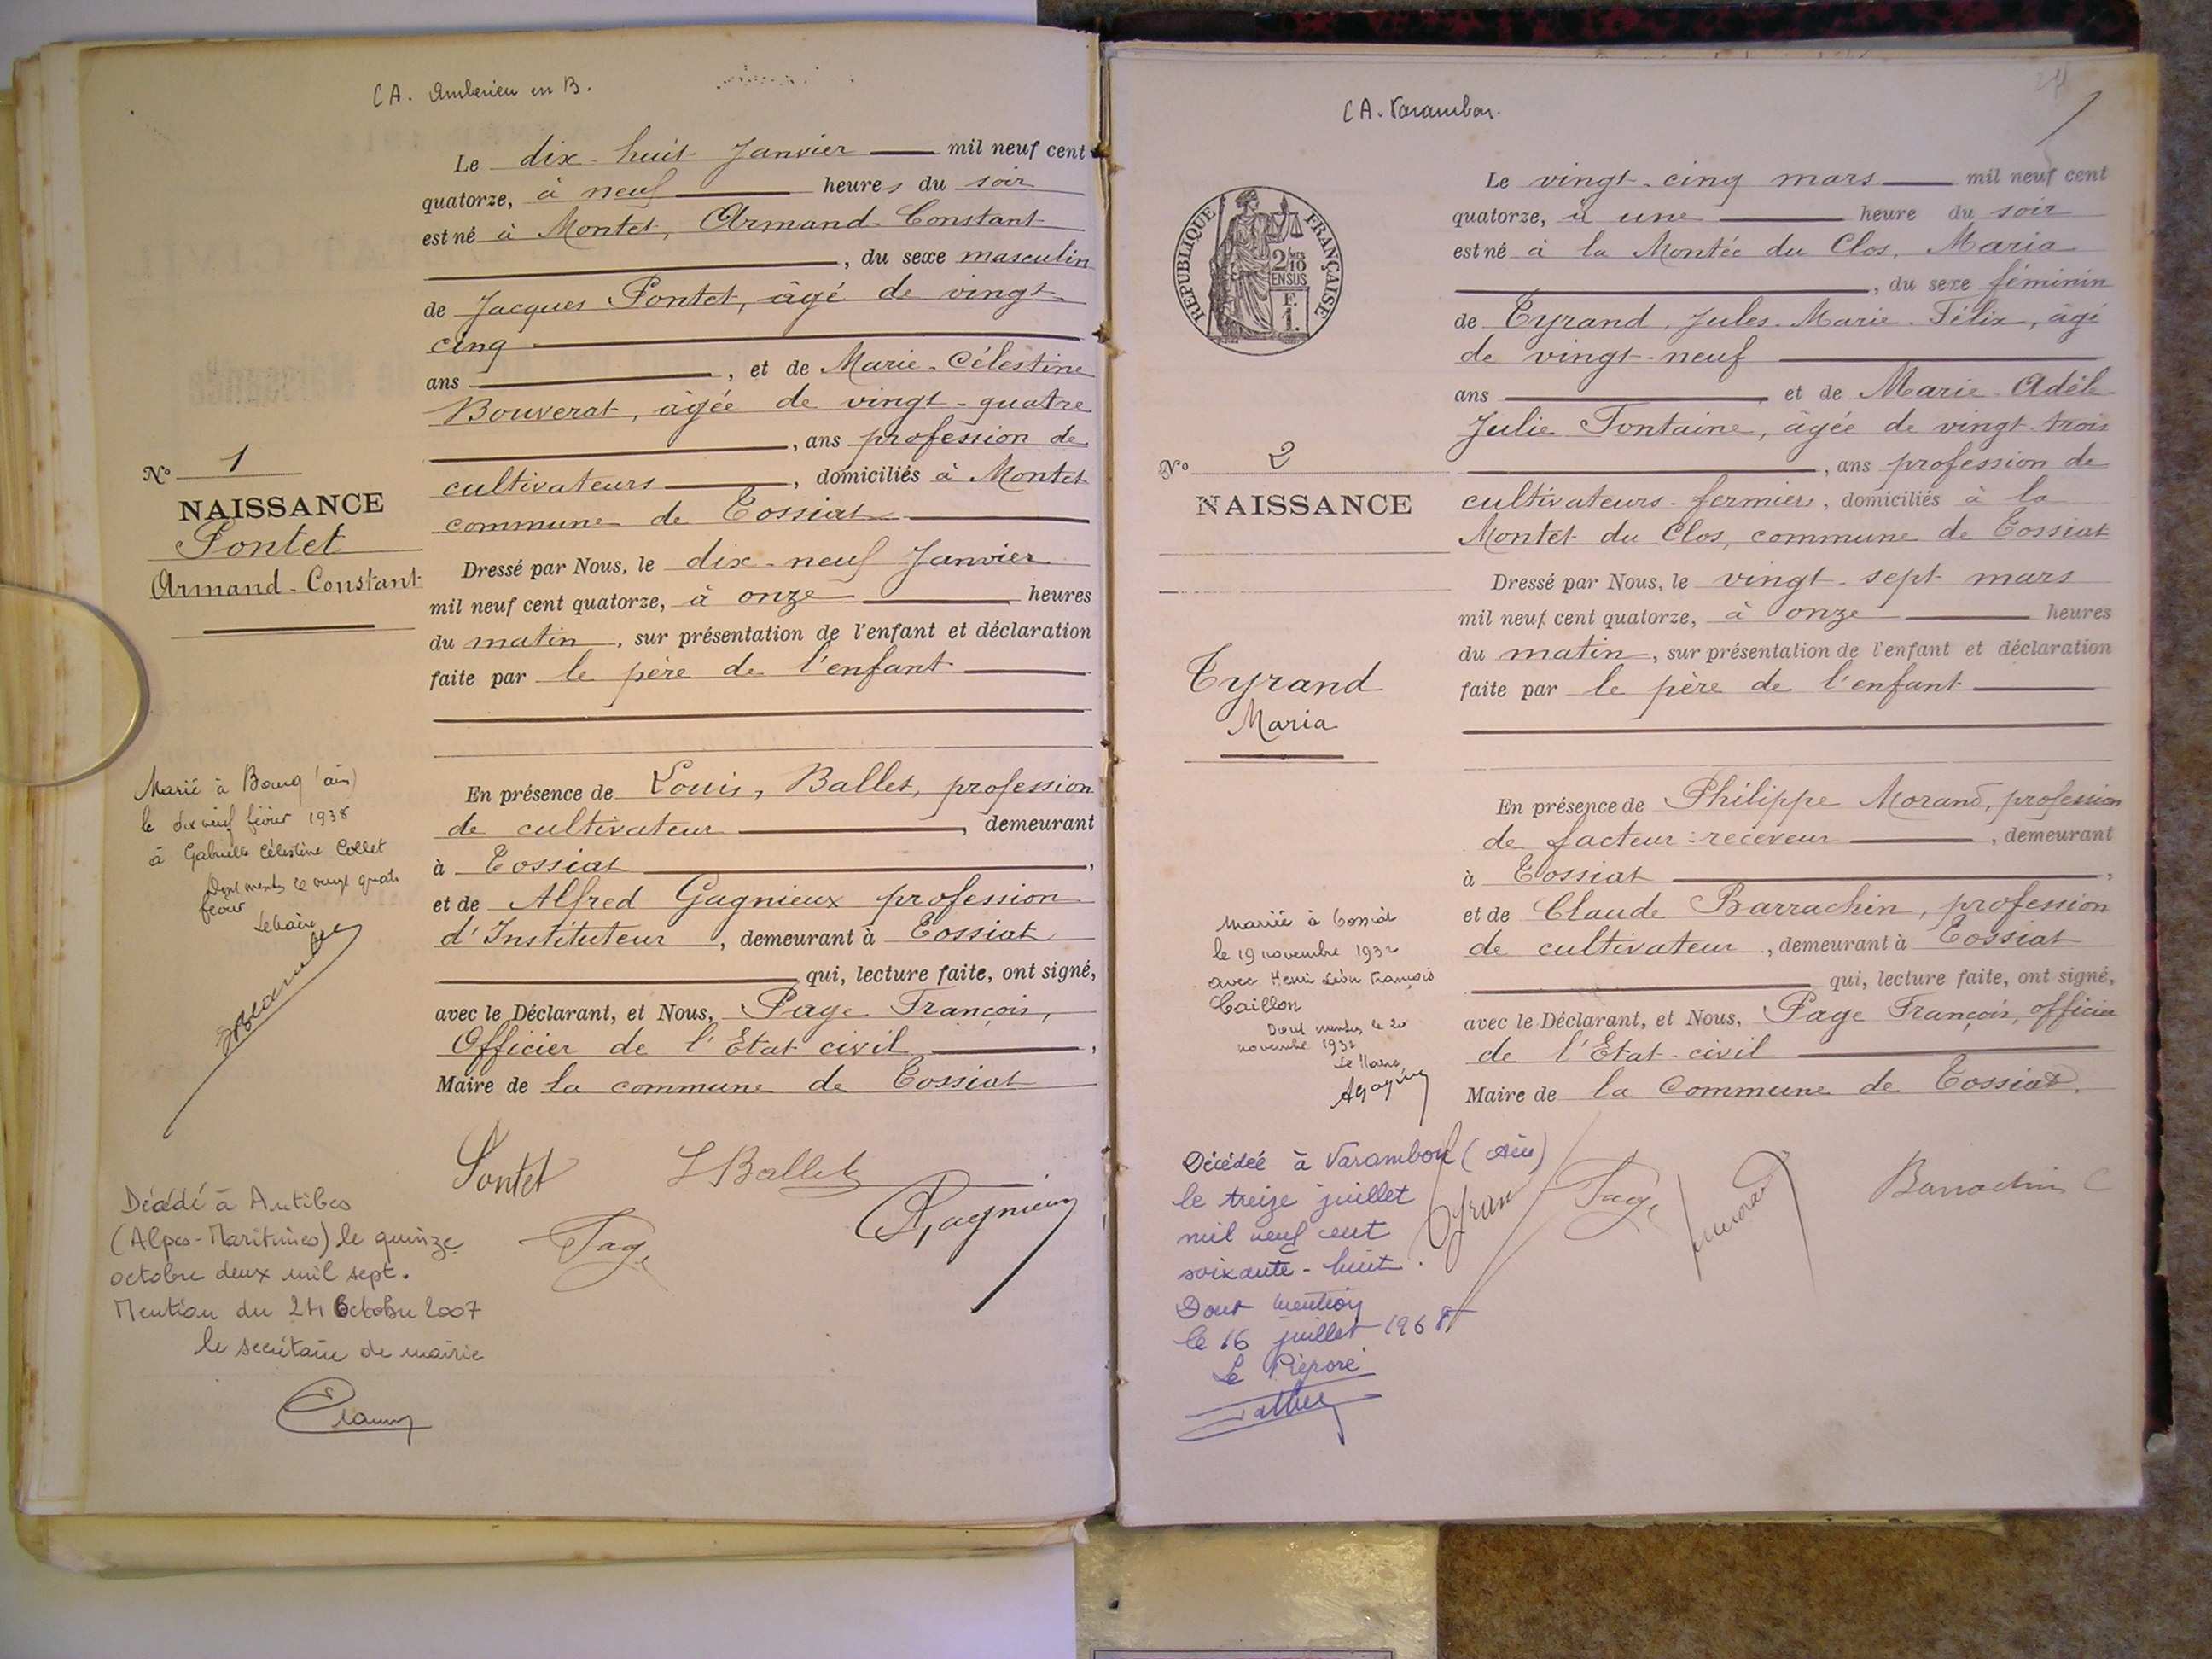 CA. Amberieu en B.
Le dix-huit Janvier mil neuf cent
quatorze, à neuf heures du soir
est né à Montet, Armand-Constant
, du sexe masculin
de Jacques Pontet, âgé de vingt
cinq
ans , et de Marie-Célestine
Bouverat, âgée de vingt-quatre
, ans profession de
cultivateurs , domiciliés à Montet
commune de Tossiat
Dressé par Nous, le dix-neuf Janvier
mil neuf cent quatorze, à onze heures
du matin , sur présentation de l'enfant et déclaration
faite par le père de l'enfant
En présence de Louis, Ballet, profession
de cultivateur , demeurant
à Tossiat ,
et de Alfred Gagnieux profession
d'Instituteur , demeurant à Tossiat
qui, lecture faite, ont signé,
avec le Déclarant, et Nous, Page François,
Officier de l'Etat civil ,
Maire de la commune de Tossiat
Pontet L Ballet
Page Gagnieux
No 1
NAISSANCE
Pontet
Armand-Constant
Marié à Bourg (ain)
le dix neuf février 1938
à Gabrielle Célestine Collet
Dont mention le vingt quatre
février
Le Maire
Décédé à Antibes
(Alpes-Maritimes) le quinze
octobre deux mil sept.
Mention du 24 Octobre 2007
le secrétaire de mairie
CA. Varambon.
Le vingt-cinq mars mil neuf cent
quatorze, à une heure du soir
est né à la Montée du Clos, Maria
, du sexe féminin
de Tyrand, Jules-Marie-Félix, âgé
de vingt-neuf
ans et de Marie-Adèle
Julie Fontaine, âgée de vingt-trois
, ans profession de
cultivateurs-fermiers, domiciliés à la
Montet du Clos, commune de Tossiat
Dressé par Nous, le vingt-sept mars
mil neuf cent quatorze, à onze heures
du matin , sur présentation de l'enfant et déclaration
faite par le père de l'enfant
En présence de Philippe Morand, profession
de facteur-receveur , demeurant
à Tossiat ,
et de Claude Barrachin, profession
de cultivateur , demeurant à Tossiat
qui, lecture faite, ont signé,
avec le Déclarant, et Nous, Page François, officier
de l'Etat-civil
Maire de la Commune de Tossiat.
Page Morand Barrachin C
RÉPUBLIQUE FRANÇAISE
2/10 EN SUS
F.
1.
No 2
NAISSANCE
Tyrand
Maria
Mariée à Tossiat
le 19 novembre 1932
avec Henri Léon François
Caillon
Dont mention le 20
novembre 1932
Le Maire
Décédée à Varambon (Ain)
le treize juillet
mil neuf cent
soixante-huit.
Dont mention
le 16 juillet 1968
Le Préposé